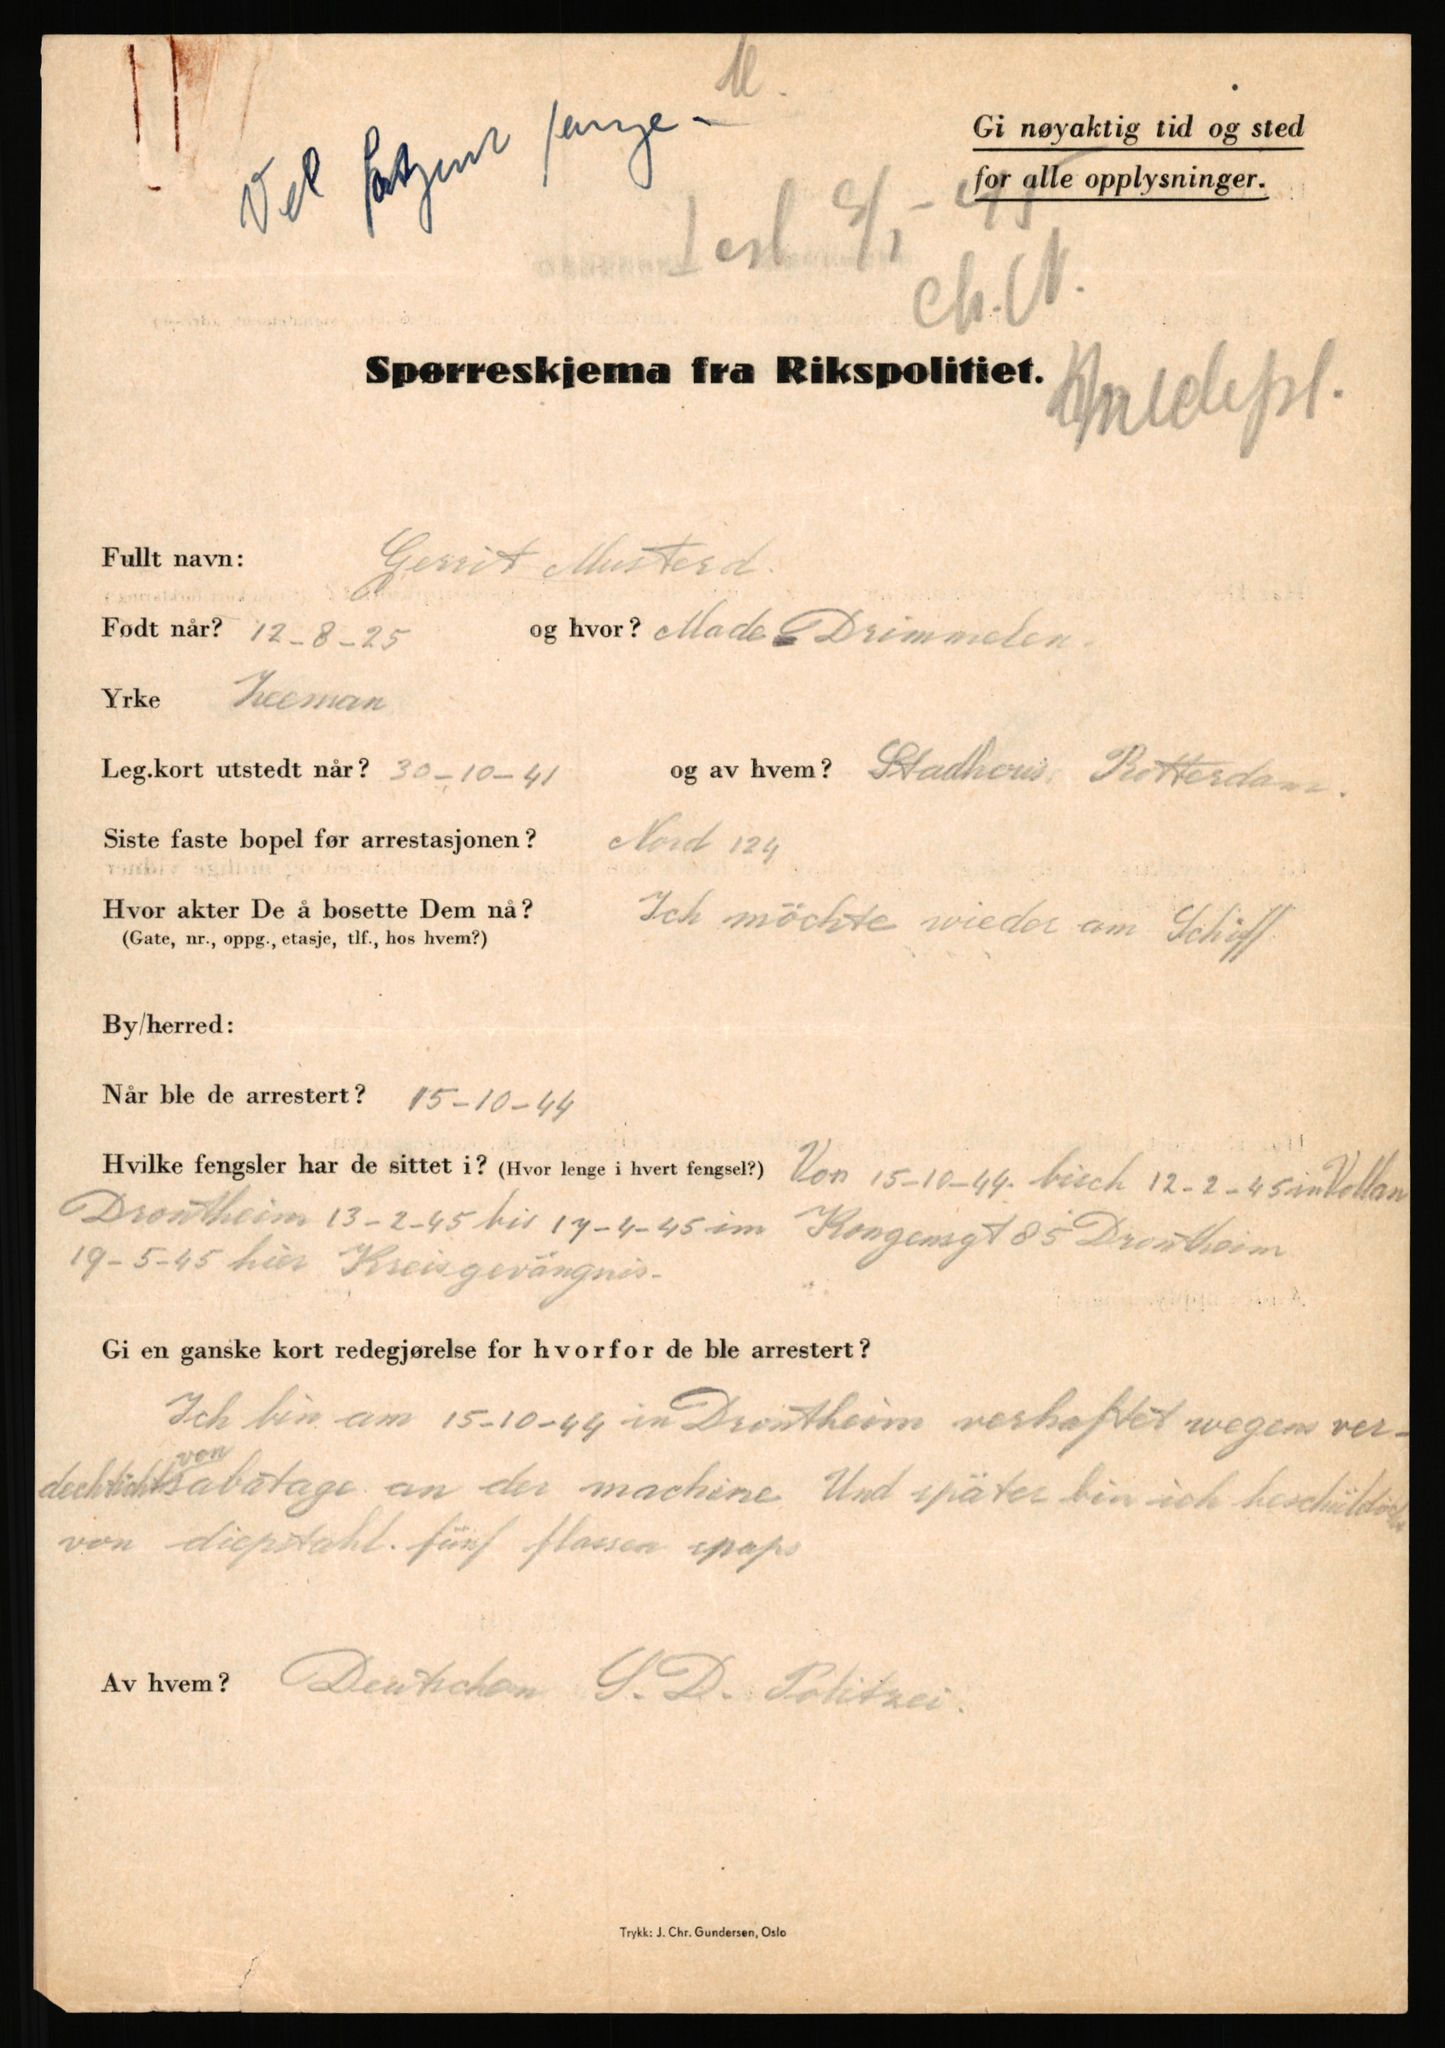 M.
Vel
Gi nøyaktig tid og sted
for alle opplysninger.
Ch. N.
Spørreskjema fra Rikspolitiet.
Fullt navn: Gerrit Musterd.
Født når? 12-8-25 og hvor? Made Drimmelen.
Yrke Zeeman
Leg.kort utstedt når? 30-10-41 og av hvem? Stadhuis Rotterdam.
Siste faste bopel før arrestasjonen? Nord 124
Hvor akter De å bosette Dem nå? Ich möchte wieder am Schiff
(Gate, nr., oppg., etasje, tlf., hos hvem?)
By/herred:
Når ble de arrestert? 15-10-44
Hvilke fengsler har de sittet i? (Hvor lenge i hvert fengsel?) Von 15-10-44. bisch 12-2-45 in Vollan
Drontheim 13-2-45 bis 17-4-45 im Kongensgt 85 Drontheim
19-5-45 hier Kreisgevängnis.
Gi en ganske kort redegjørelse for hvorfor de ble arrestert?
Ich bin am 15-10-44 in Drontheim verhaftet wegens ver-
von
sabotage an der machine Und später bin ich
von diepstahl. fünf flassen spaps
Av hvem? Deutschen S.D. Politzei.
Trykk: J. Chr. Gundersen, Oslo